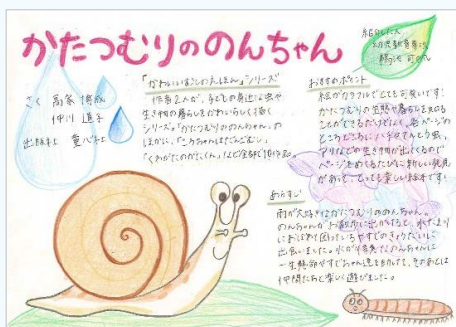 かたつむりののんちゃん
紹介した人
さく 高家 博成
仲川 道子
出版社 童心社
「かわいいむしのえほん」シリーズ
作者2人が、子どもの身近な虫や
生き物の暮らしをかわいらしく描く
シリーズ。「かたつむりののんちゃん」の
ほかに、「ころちゃんはだんごむし」
「くわがたのがたくん」など全
おすすめポイント
絵がカラフルでとても可愛いです!
かたつむりの生態や暮らしを知る
ことができるだけでなく、各ページの
ところどころにハチやてんとう虫、
アリなどの生き物が出てくるので
ページをめくるたびに新しい発見
があって、とっても楽しい絵本です!
あらすじ
雨が大好きなかたつむりののんちゃん。
のんちゃんがお散歩に出かけると、水たまり
におぼれて困っているやすでのきょうだいに
出会いました。水が得意なのんちゃんは
一生懸命やすでちゃん達を助けて、そのあとは
仲間たちと楽しく遊びました。